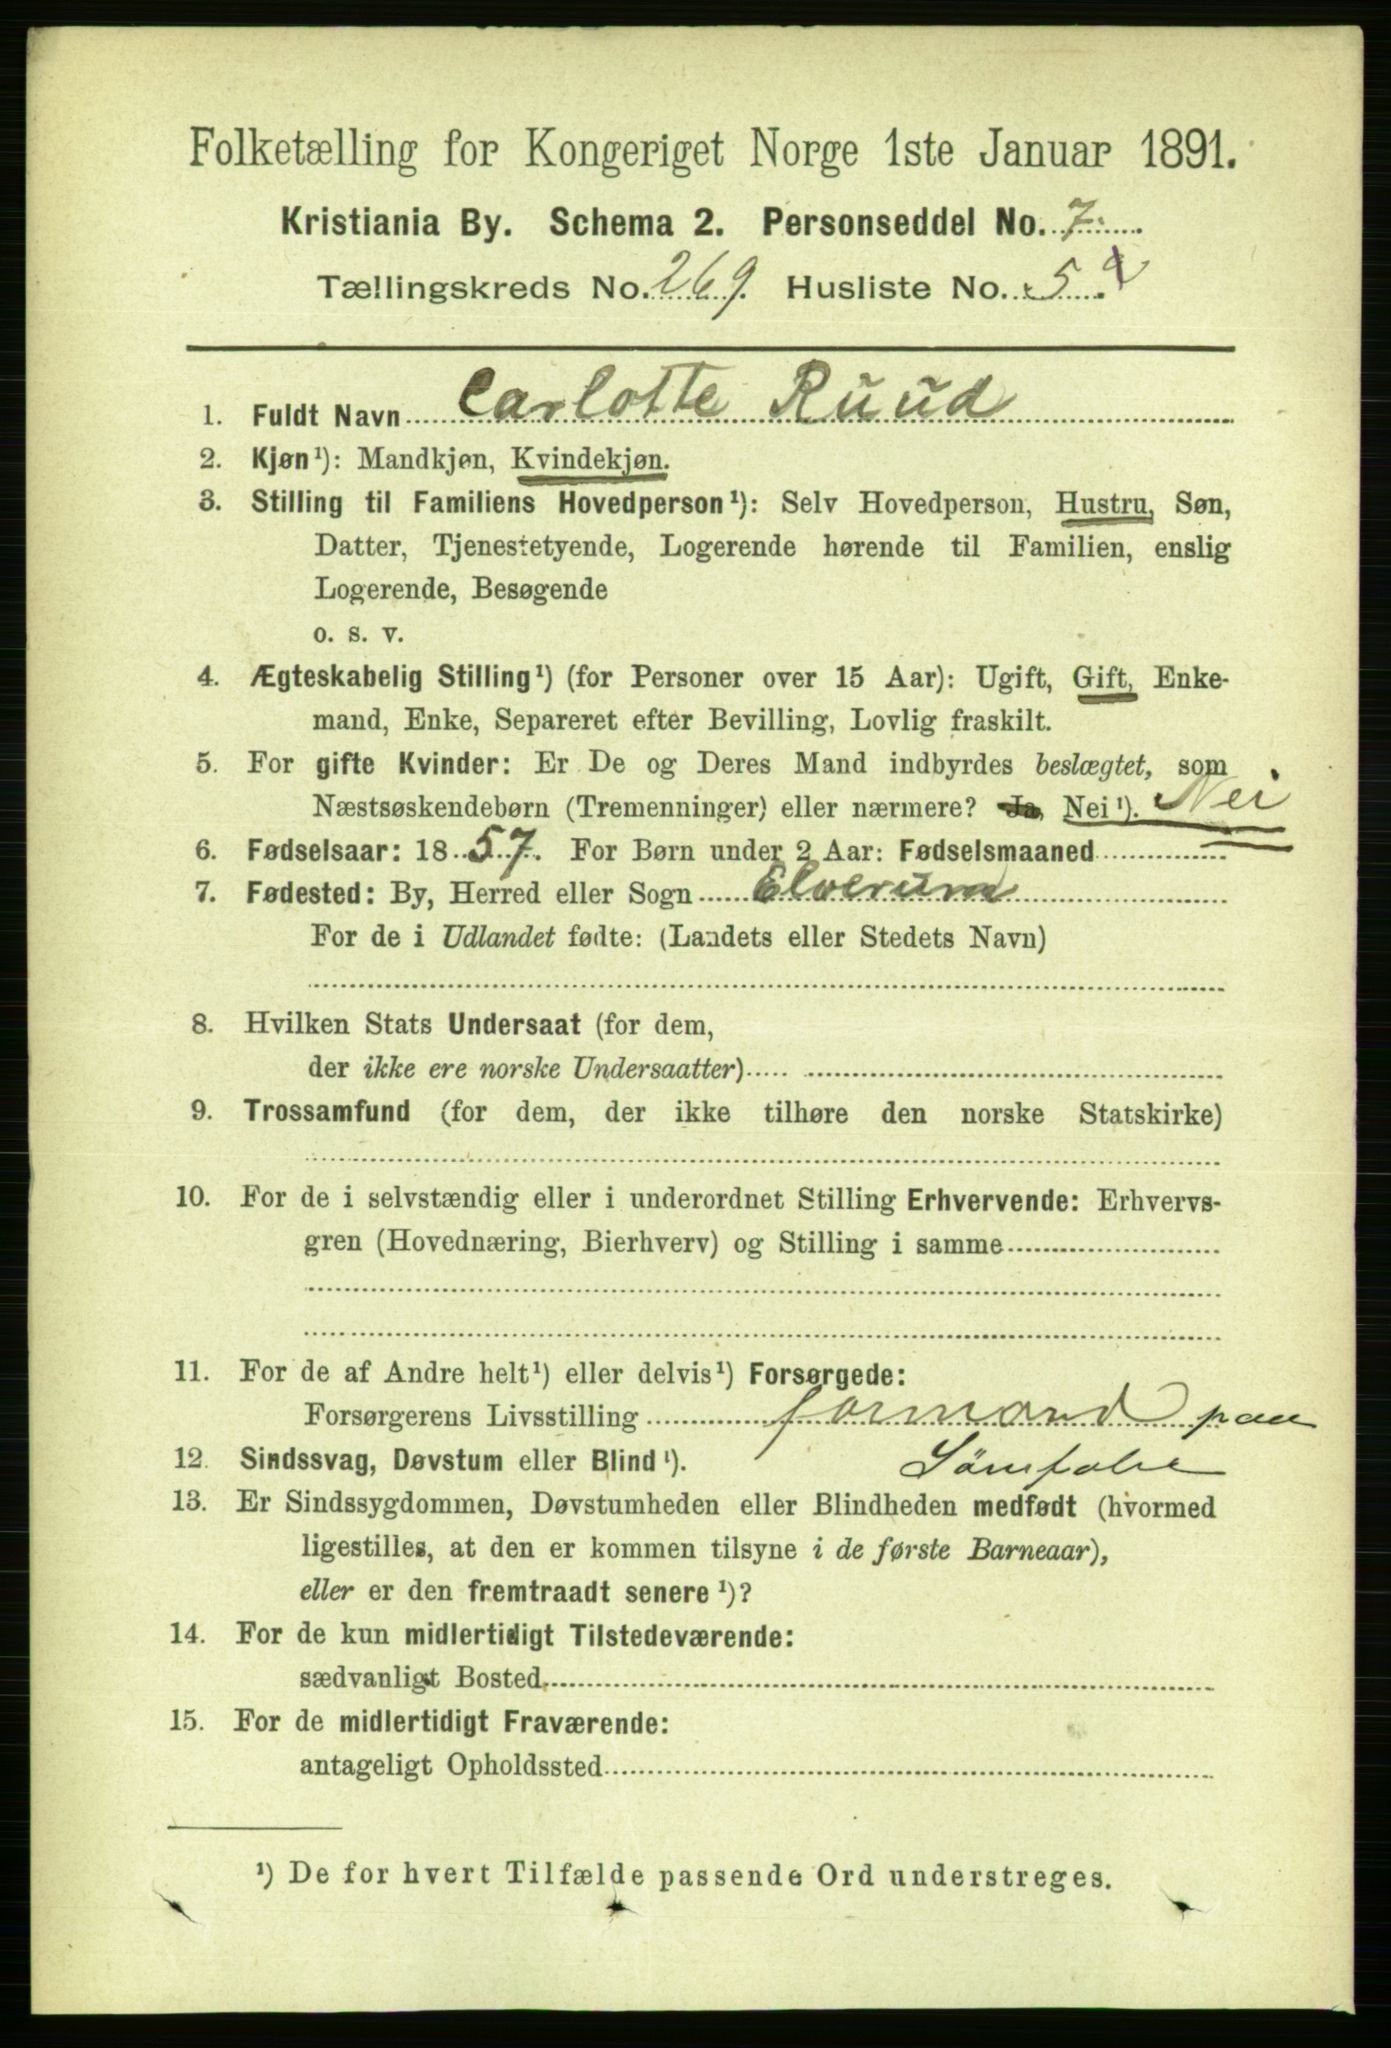 Folketælling for Kongeriget Norge 1ste Januar 1891.
Kristiania By. Schema 2. Personseddel No. 7.
Tællingskreds No. 269. Husliste No. 5
1. Fuldt Navn Carlotte Ruud
2. Kjøn¹): Mandkjøn, Kvindekjøn.
3. Stilling til Familiens Hovedperson¹): Selv Hovedperson, Hustru, Søn,
Datter, Tjenestetyende, Logerende hørende til Familien, enslig
Logerende, Besøgende
o. s. v.
4. Ægteskabelig Stilling¹) (for Personer over 15 Aar): Ugift, Gift, Enke-
mand, Enke, Separeret efter Bevilling, Lovlig fraskilt.
5. For gifte Kvinder: Er De og Deres Mand indbyrdes beslægtet, som
Næstsøskendebørn (Tremenninger) eller nærmere? Ja, Nei¹). Nei
6. Fødselsaar: 1857. For Børn under 2 Aar: Fødselsmaaned
7. Fødested: By, Herred eller Sogn Elverum
For de i Udlandet fødte: (Landets eller Stedets Navn)
8. Hvilken Stats Undersaat (for dem,
der ikke ere norske Undersaatter)
9. Trossamfund (for dem, der ikke tilhøre den norske Statskirke)
10. For de i selvstændig eller i underordnet Stilling Erhvervende: Erhvervs-
gren (Hovednæring, Bierhverv) og Stilling i samme
11. For de af Andre helt¹) eller delvis¹) Forsørgede:
Forsørgerens Livsstilling formand paa
12. Sindssvag, Døvstum eller Blind¹).
13. Er Sindssygdommen, Døvstumheden eller Blindheden medfødt (hvormed
ligestilles, at den er kommen tilsyne i de første Barneaar),
eller er den fremtraadt senere¹)?
14. For de kun midlertidigt Tilstedeværende:
sædvanligt Bosted
15. For de midlertidigt Fraværende:
antageligt Opholdssted
¹) De for hvert Tilfælde passende Ord understreges.